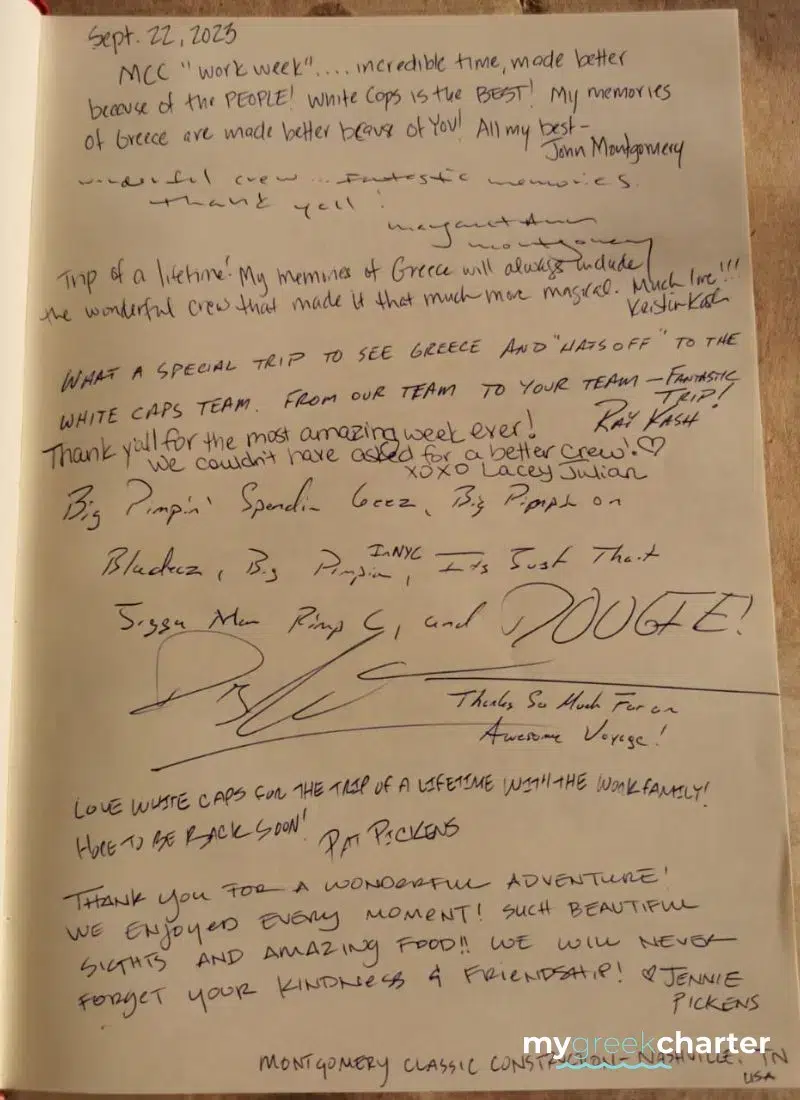 Sept. 22, 2023
MCC "work week".... incredible time, made better
because of the PEOPLE! White Caps is the BEST! My memories
of Greece are made better beause of YOU! All my best-
John Montgomery
wonderful crew... Fantastic memories.
Thank yall!
Margaret Ann
Montgomery
Trip of a lifetime! My memories of Greece will always include
the wonderful crew that made it that much more magical. Much love!!!
Kristin Kash
WHAT A SPECIAL TRIP TO SEE GREECE AND "HATS OFF" TO THE
WHITE CAPS TEAM. FROM OUR TEAM TO YOUR TEAM - FANTASTIC
TRIP!
RAY KASH
Thank y'all for the most amazing week ever!
We couldn't have asked for a better crew! ♡
XOXO Lacey Julian
Big Pimpin' Spendin Geez, Big Pimpin on
Bladez, Big Pimpin In NYC, Its Just That
Jigga Man Pimp C, and DOUGIE!
Thanks So Much For an
Awesome Voyage!
LOVE WHITE CAPS FOR THE TRIP OF A LIFETIME WITH THE WORK FAMILY!
HOPE TO BE BACK SOON!
PAT PICKENS
THANK YOU FOR A WONDERFUL ADVENTURE!
WE ENJOYED EVERY MOMENT! SUCH BEAUTIFUL
SIGHTS AND AMAZING FOOD!! WE WILL NEVER
FORGET YOUR KINDNESS & FRIENDSHIP! ♡ JENNIE
PICKENS
mygreekcharter
MONTGOMERY CLASSIC CONSTRUCTION - NASHVILLE, TN
USA